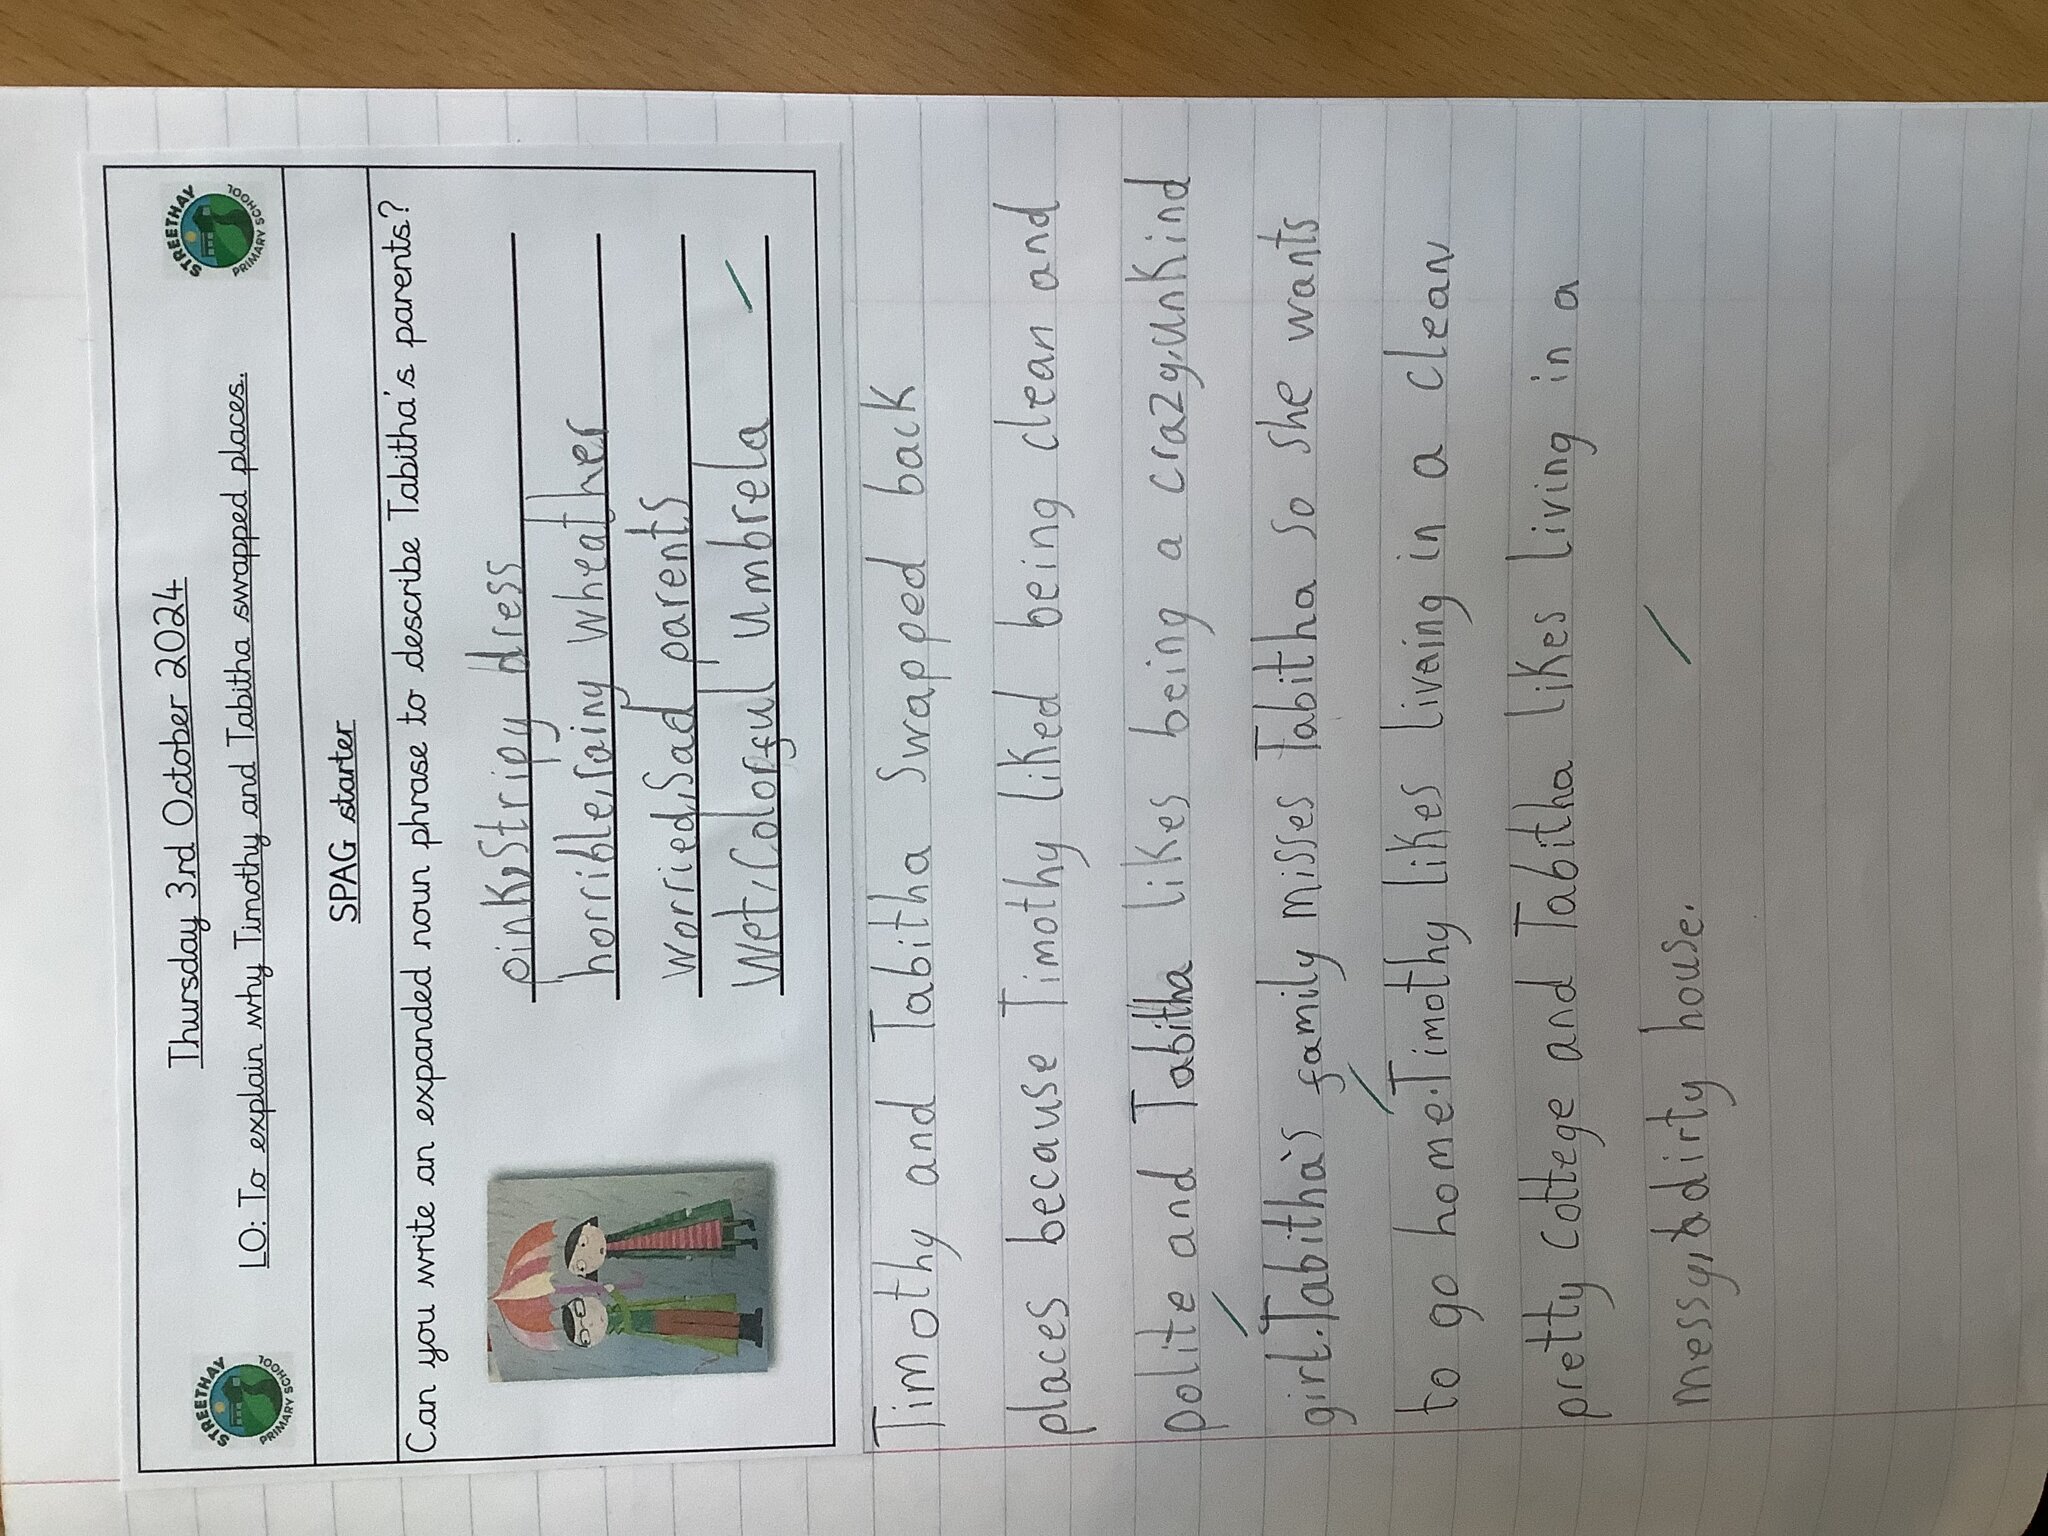 STREETHAY PRIMARY SCHOOL
Thursday 3rd October 2024
STREETHAY PRIMARY SCHOOL
LO: To explain why Timothy and Tabitha swapped places.
SPAG starter
Can you write an expanded noun phrase to describe Tabitha's parents?
pink,stripy dress
horrible,rainy wheather
worried,sad parents
wet,colorful umbrela
Timothy and Tabitha swapped back
places because Timothy liked being clean and
polite and Tabitha likes being a crazy,unkind
girl.Tabitha's family misses Tabitha so she wants
to go home.Timothy likes living in a clean
pretty cottege and Tabitha likes living in a
messy,dirty house.